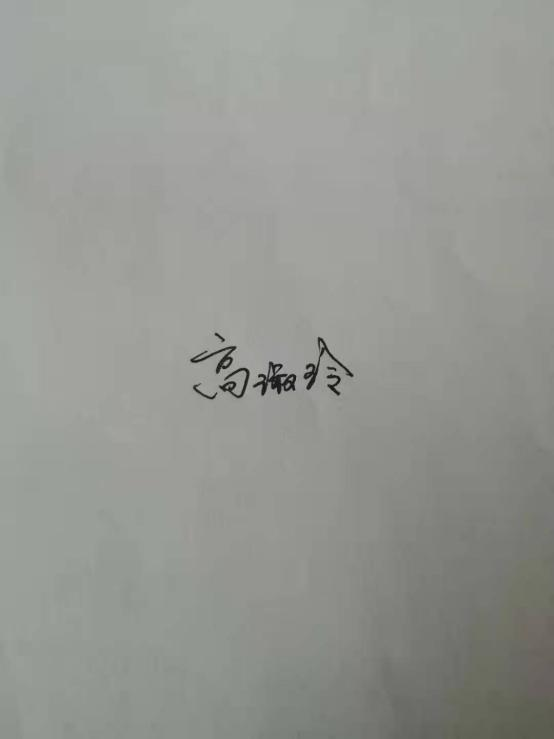 高淑玲